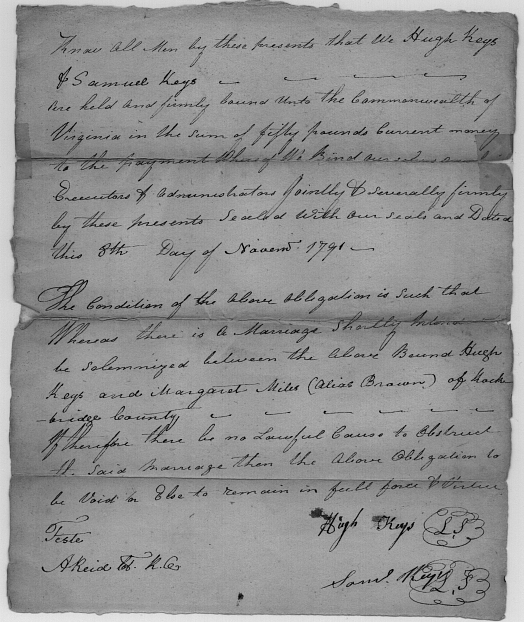 Know All Men by these presents that We Hugh Keys
& Samuel Keys
are held and firmly bound unto the Commonwealth of
Virginia in the sum of fifty pounds Current money
to the payment Whereof We Bind our
Executors & administrators Jointly & severally firmly
by these presents Sealed With our seals and Dated
this 8th Day of Novemr. 1791
The Condition of the Above Obligation is such that
Whereas there is a Marriage shortly
be solemnized between the Above Bound Hugh
Keys and Margaret Miles (Alias Brown) of Rock
-bridge County
If therefore there be no Lawful Cause to Obstruct
the Said Marriage then the Above Obligation to
be Void or Else to remain in full force & Virtue
Teste
Hugh Keys L.S
A Reid
Saml. Keys L.S